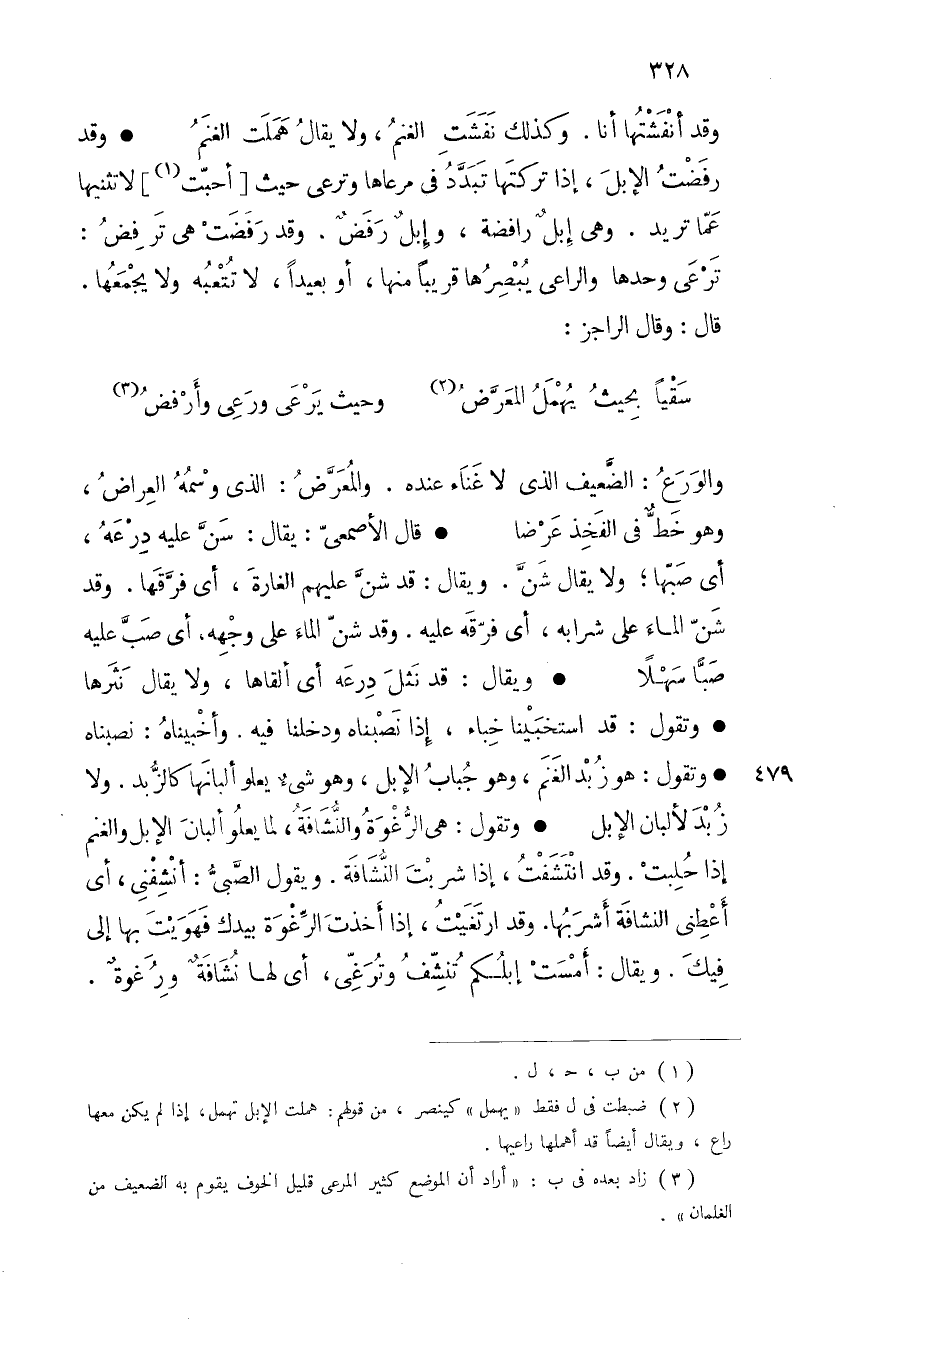 ٣٢٨
وقد أنْفَشْتُها أنا . وكذلك نَفَشَتِ الغنمُ ، ولا يقالُ هَمَلَت الغنَمُ ● وقد
رفَضْتُ الإبلَ ، إذا تركتَها تَبَدَّدُ فى مرعاها وترعى حيث [ أحبّت(١) ] لا تثنيها
عَمّا تريد . وهى إبلٌ رافضة ، وإبلٌ رَفَضٌ . وقد رَفَضَتْ هى تَرفِضُ :
تَرْعَى وحدها والراعى يُبْصِرُها قريباً منها ، أو بعيداً ، لا تُتْعبُه ولا يجْمَعُها .
قال : وقال الراجز :
سَقْياً بحيثُ يُهْمَلُ المعَرَّضُ(٢) وحيث يَرْعَى ورَعِى وأَرْفضُ(٣)
والوَرَعُ : الضَّعيف الذى لا غَنَاء عنده . والمُعَرَّضُ : الذى وسْمُهُ العِراضُ ،
وهو خَطٌّ فى الفَخِذ عَرْضا ● قال الأصمعىّ : يقال : سَنَّ عليه دِرْعَهُ ،
أى صَبّها ؛ ولا يقال شَنَّ . ويقال : قد شنَّ عليهم الغارةَ ، أى فرَّقَها . وقد
شَنّ المـاءَ على شرابه ، أى فرّقَه عليه . وقد شنّ الماءَ على وجْهِه، أى صَبَّ عليه
صَبًّا سَهْلًا ● ويقال : قد نَثلَ دِرعَه أى ألقاها ، ولا يقال نَثَرها
● وتقول : قد استخبَيْنا خِباء ، إذا نَصْبناه ودخلنا فيه . وأخْبيناهُ : نصبناه
٤٧٩ ● وتقول : هو زُبْد الغَنَم ، وهو جُبابُ الإبل ، وهو شىء يعلو ألبانَها كالزُّبد . ولا
زُبْدَ لألبان الإبل ● وتقول : هى الرُّغْوَةُ والنُّشَافَةُ ، لما يعلُو ألبانَ الإبل والغنم
إذا حُلِبتْ . وقد انْتَشَفْتُ ، إذا شربْتَ النُّشَافَة . ويقول الصَّبىُّ : أنْشِفْنِى ، أى
أَعْطِنى النشافَة أشرَبُها. وقد ارتَغَيْتُ ، إذا أخذتَ الرِّغْوَة بيدك فَهَوَيْتَ بها إلى
فِيكَ . ويقال : أَمْسَتْ إبلُـكم تُنشِّفُ وتُرَغِّى ، أى لهـا نُشَافَةٌ ورُغوةٌ .
( ١ ) من ب ، ح ، ل .
( ٢ ) ضبطت فى ل فقط « يهمل » كينصر ، من قولهم : هملت الإبل تهمل، إذا لم يكن معها
راع ، ويقال أيضاً قد أهملها راعيها .
( ٣ ) زاد بعده فى ب : « أراد أن الموضع كثير المرعى قليل الخوف يقوم به الضعيف من
الغلمان » .